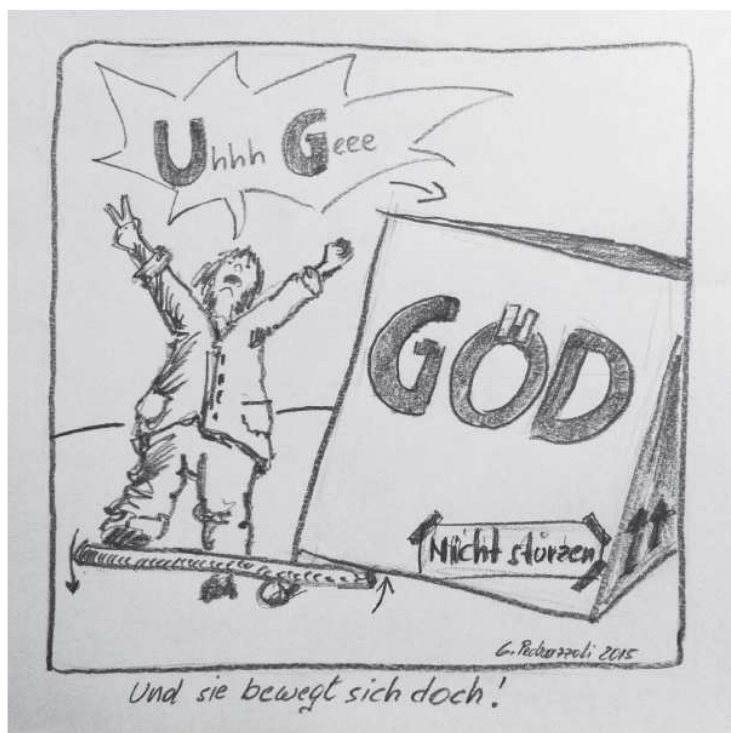 Uhhh Geee
GÖD
Nicht stürzen
G. Pedrazzoli 2015
Und sie bewegt sich doch!